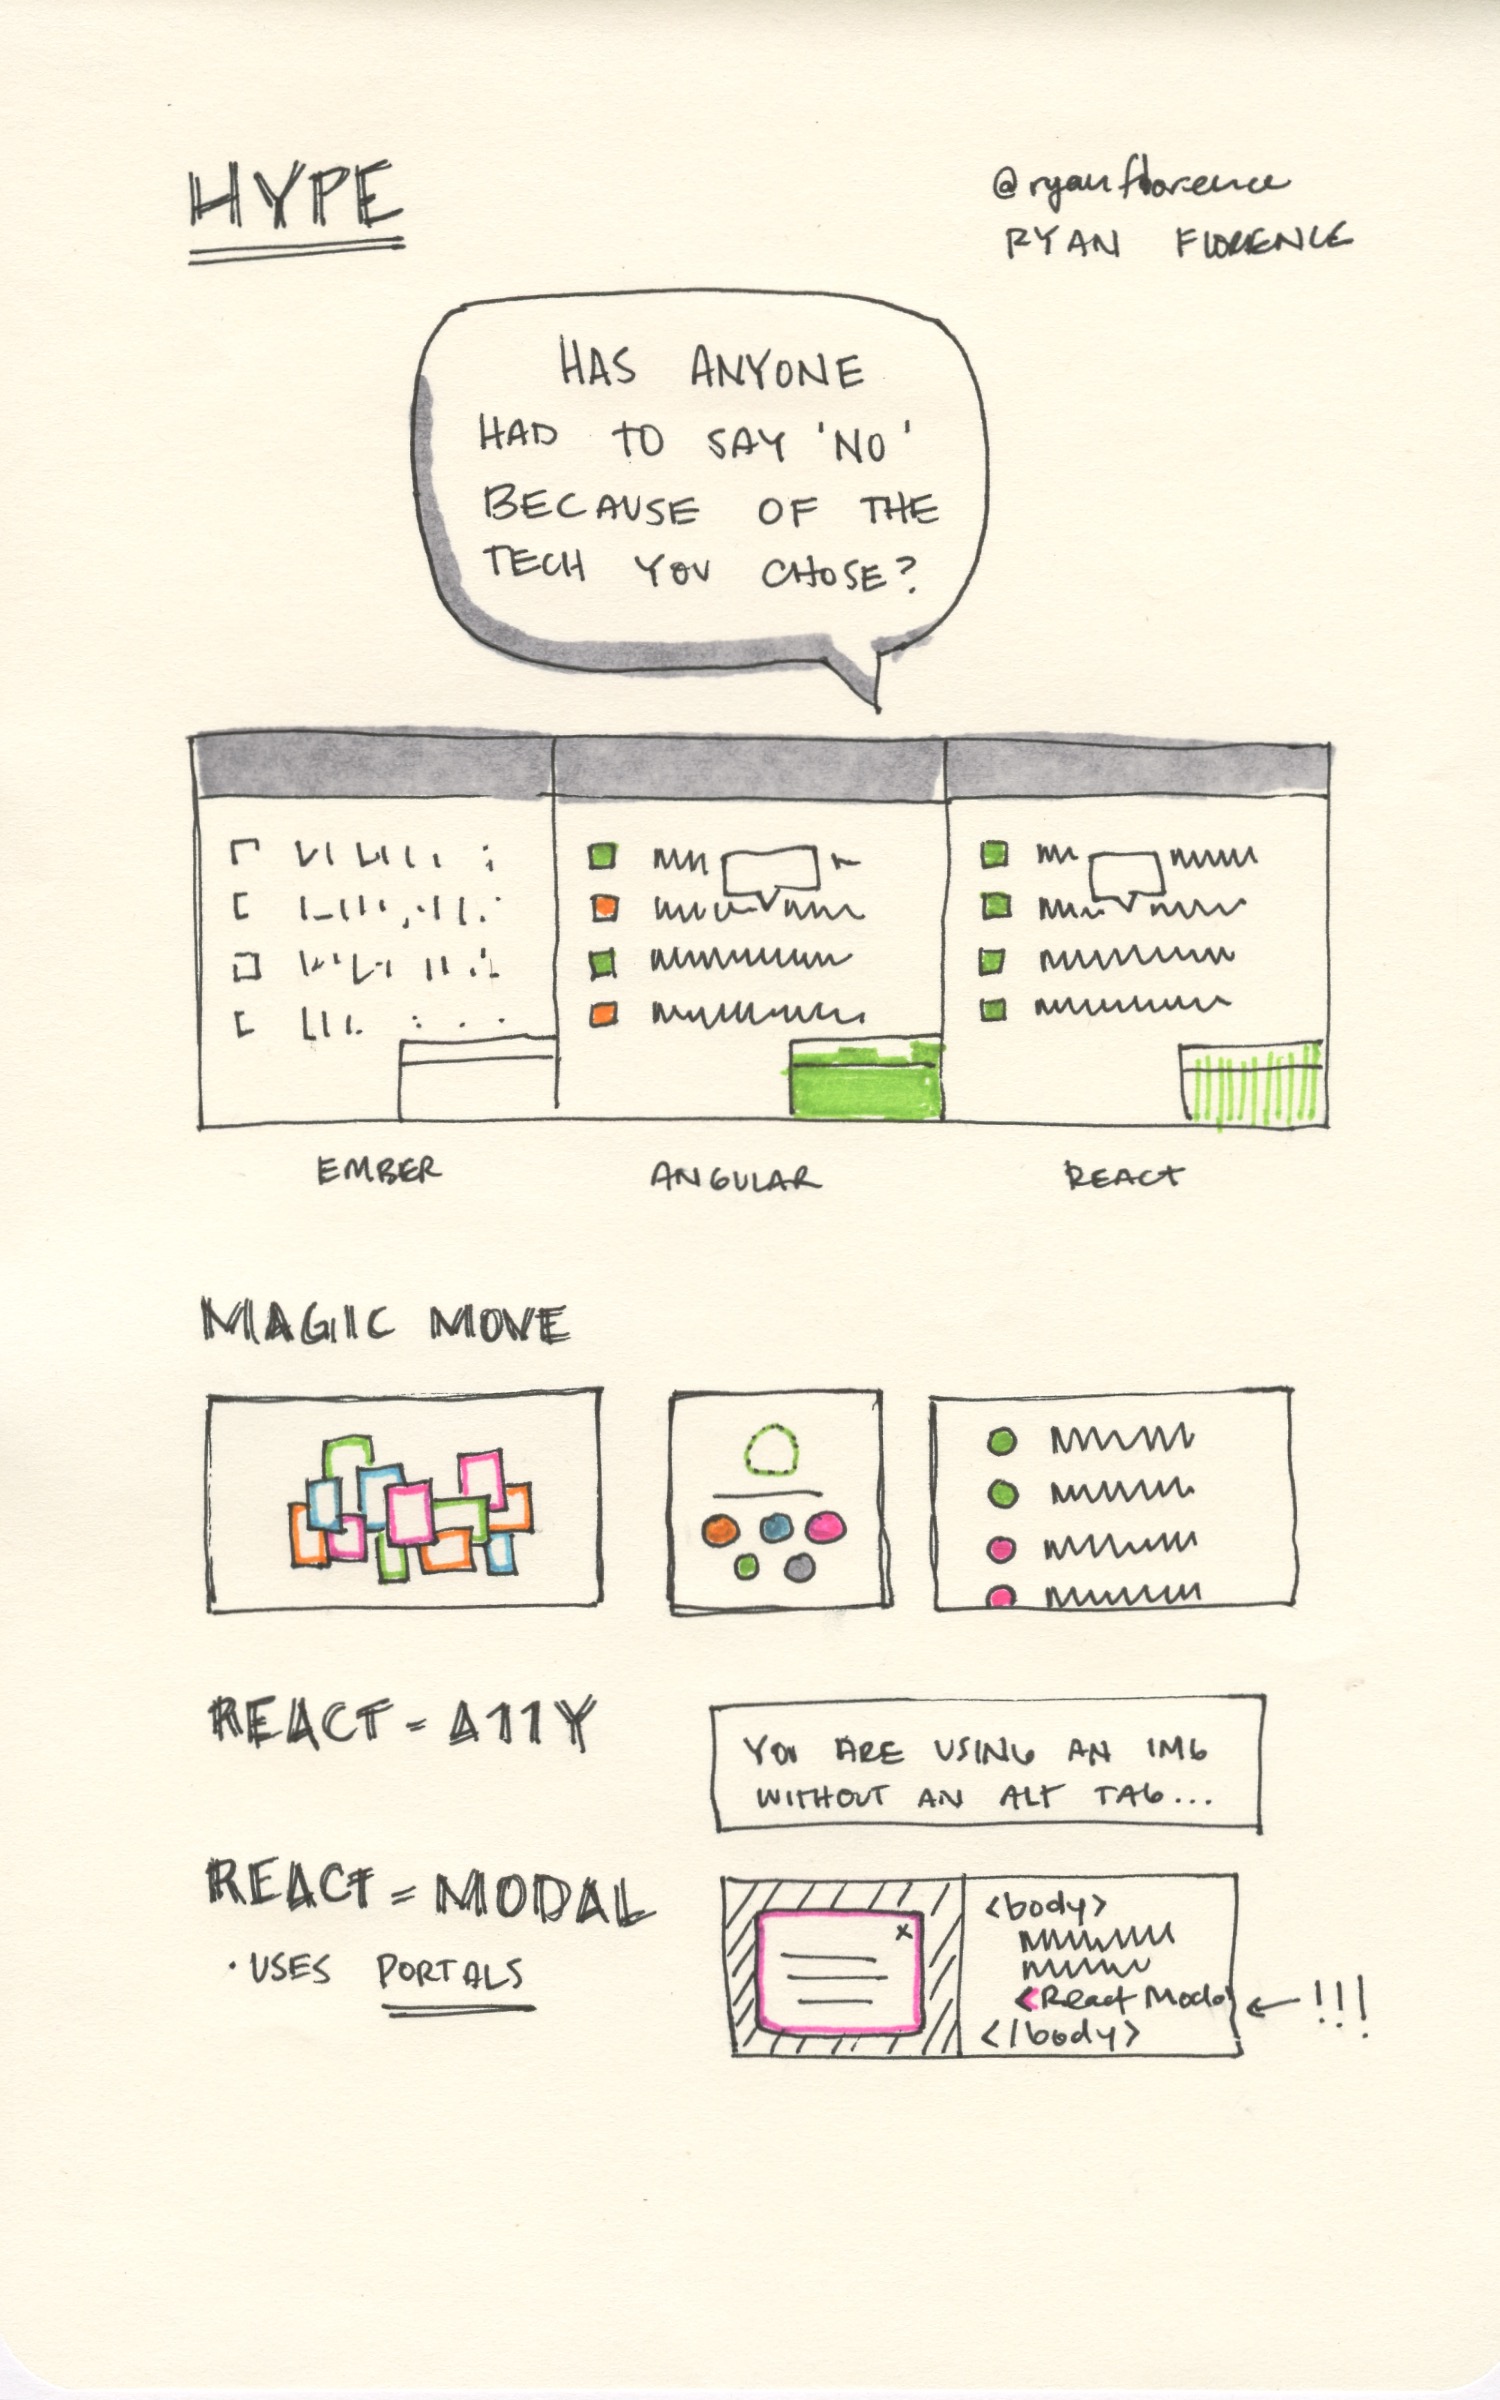 HYPE
@ryanflorence
RYAN FLORENCE
HAS ANYONE
HAD TO SAY 'NO'
BECAUSE OF THE
TECH YOU CHOSE?
EMBER
ANGULAR
REACT
MAGIC MOVE
REACT - A11Y
YOU ARE USING AN IMG
WITHOUT AN ALT TAG...
REACT = MODAL
• USES PORTALS
x
<body>
<React Modal
</body>
!!!